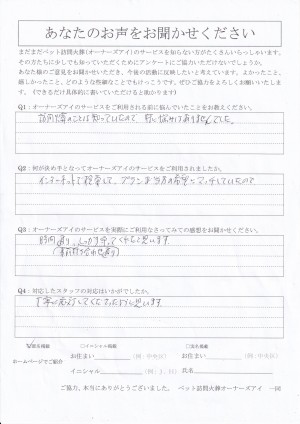 あなたのお声をお聞かせください
まだまだペット訪問火葬(オーナーズアイ)のサービスを知らない方がたくさんいらっしゃいます。
その方たちに少しでも知っていただくためにアンケートにご協力いただけないでしょうか。
あなた様のご意見をお聞かせいただき、今後の活動に反映したいと考えています。よかったこと、
厳しかったこと、どのような些細なことでもけっこうです。ぜひご協力をよろしくお願いいたしま
す。(できるだけ具体的に書いていただけると助かります)
Q1：オーナーズアイのサービスをご利用される前に悩んでいたことをお教えください。
訪問火葬のことは知っていたので、特に悩みはありませんでした。
Q2：何が決め手となってオーナーズアイのサービスをご利用されましたか。
インターネットで検索して、プランが当方の希望にマッチしていたので
Q3：オーナーズアイのサービスを実際にご利用なさってみての感想をお聞かせください。
時間通り、しっかりやってくれたと思います。
(事前打ち合わせ通り)
Q4：対応したスタッフの対応はいかがでしたか。
丁寧に対応してくださったと思います
匿名掲載 □イニシャル掲載 □実名掲載
ホームページでご紹介
お住まい (例：中央区) お住まい (例：中央区)
イニシャル 氏名
ご協力、本当にありがとうございました。 ペット訪問火葬オーナーズアイ 一同